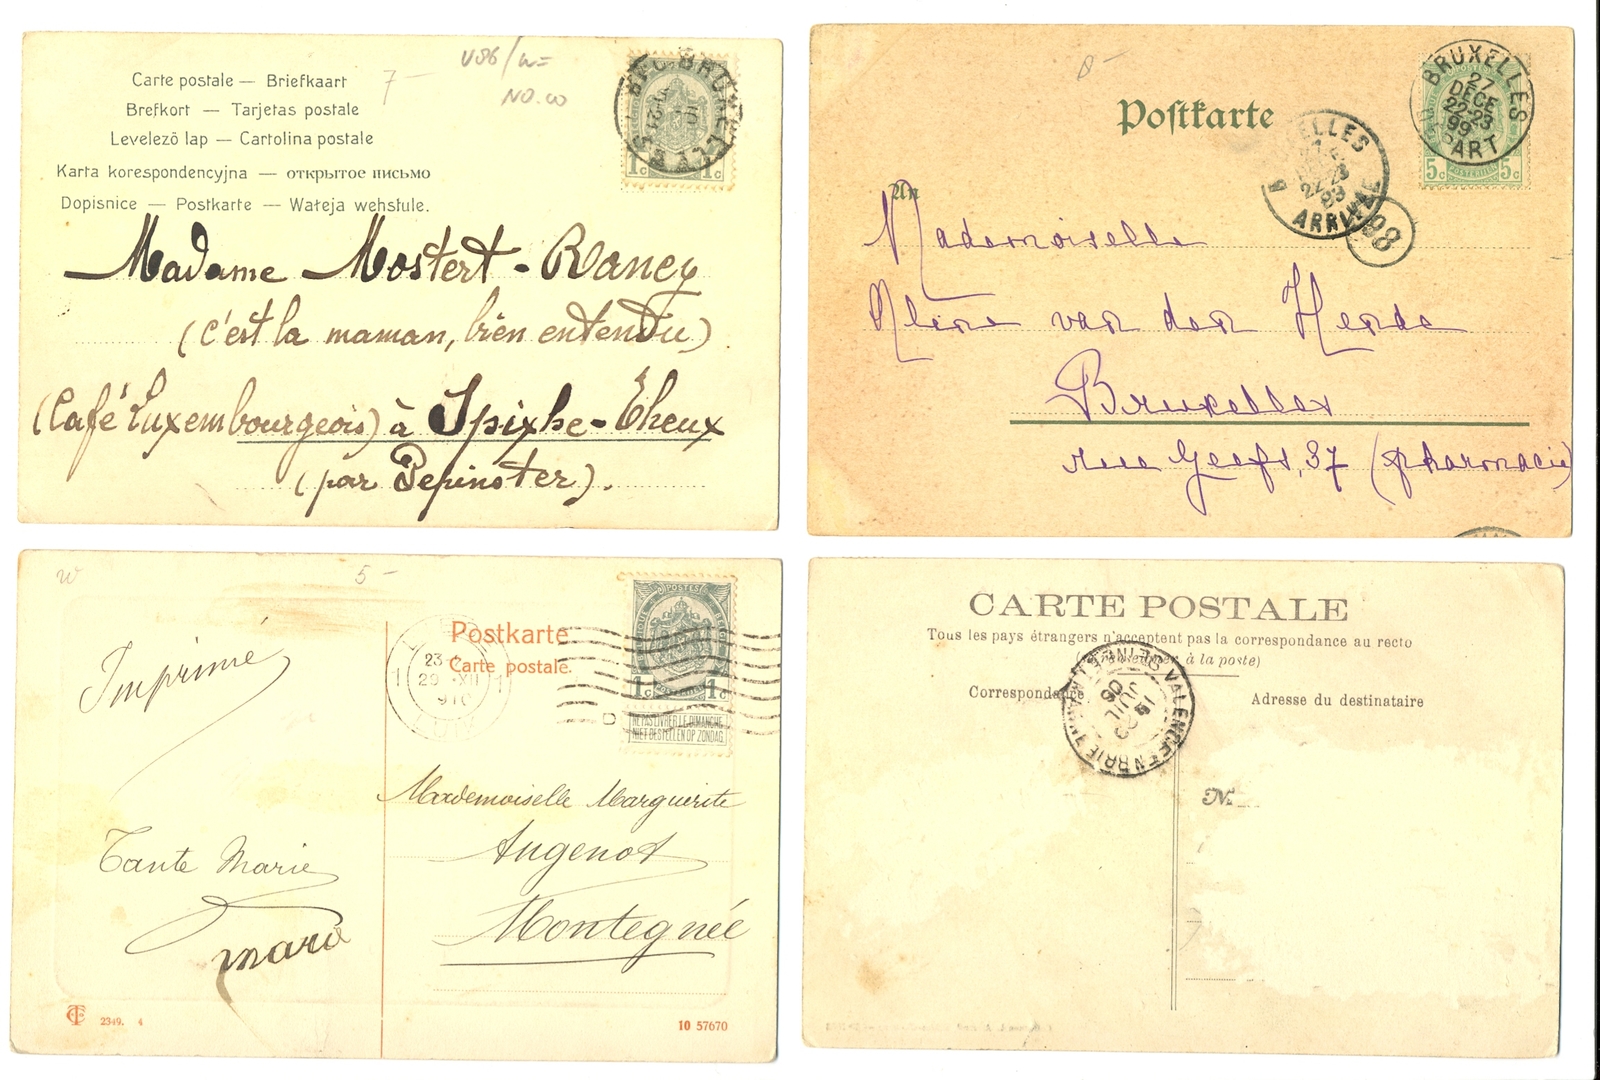 Carte postale — Briefkaart
Brefkort — Tarjetas postale
Levelezö lap — Cartolina postale
Karta korespondencyjna — открытое письмо
Dopisnice — Postkarte — Wałeja wehstule.
7 —
BRUXELLES
1c 1c
Madame Mostert - Raney
(c'est la maman, bien entendu)
(Café Luxembourgeois) à Spixhe - Theux
(par Pepinster).
8 —
Postkarte
An
BRUXELLES
27
DÉCE
22-23
99
DÉPART
5c 5c
ARRIVÉE
98
Mademoiselle
van den Hende
Bruxelles
rue Geefs, 37 (pharmacie)
5 —
Imprimé
Postkarte
Carte postale.
23
29 XII
POSTES
1c 1c
NE PAS LIVRER LE DIMANCHE
NIET BESTELLEN OP ZONDAG
Mademoiselle Marguerite
Augenot
Montegnée
Tante Marie
2349. 4
10 57670
CARTE POSTALE
Tous les pays étrangers n'acceptent pas la correspondance au recto
à la poste)
Correspondance
Adresse du destinataire
VALENCE EN BRIE
JUIL
06
M